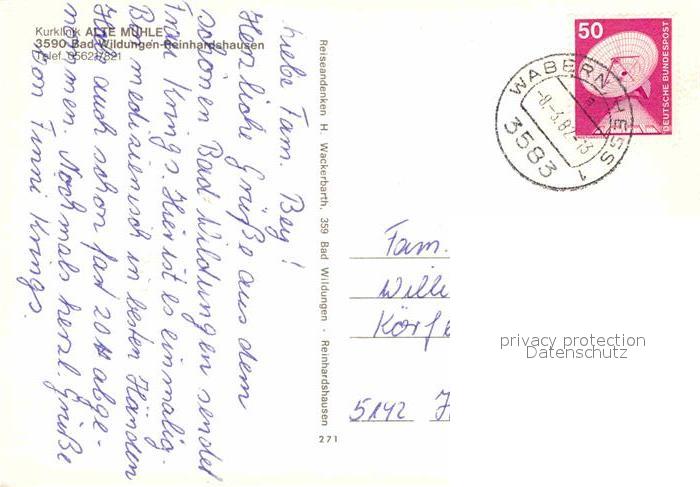 Kurklinik ALTE MÜHLE
3590 Bad Wildungen-Reinhardshausen
Telef. 05621/821
Liebe Fam. Bey!
Herzliche Grüße aus dem
schönen Bad Wildungen sendet
Frau Krings. Hier ist es einmalig.
Bin medizinisch in besten Händen
Habe auch schon fast 20 # abge-
nommen. Nochmals herzl. Grüße
von Finni Krings.
Reiseandenken H. Wackerbarth, 359 Bad Wildungen - Reinhardshausen
271
50
DEUTSCHE BUNDESPOST
WABERN, HESS 1
-8.-3.82-13
3583
Fam.
Willi
Körf
5142
privacy protection
Datenschutz